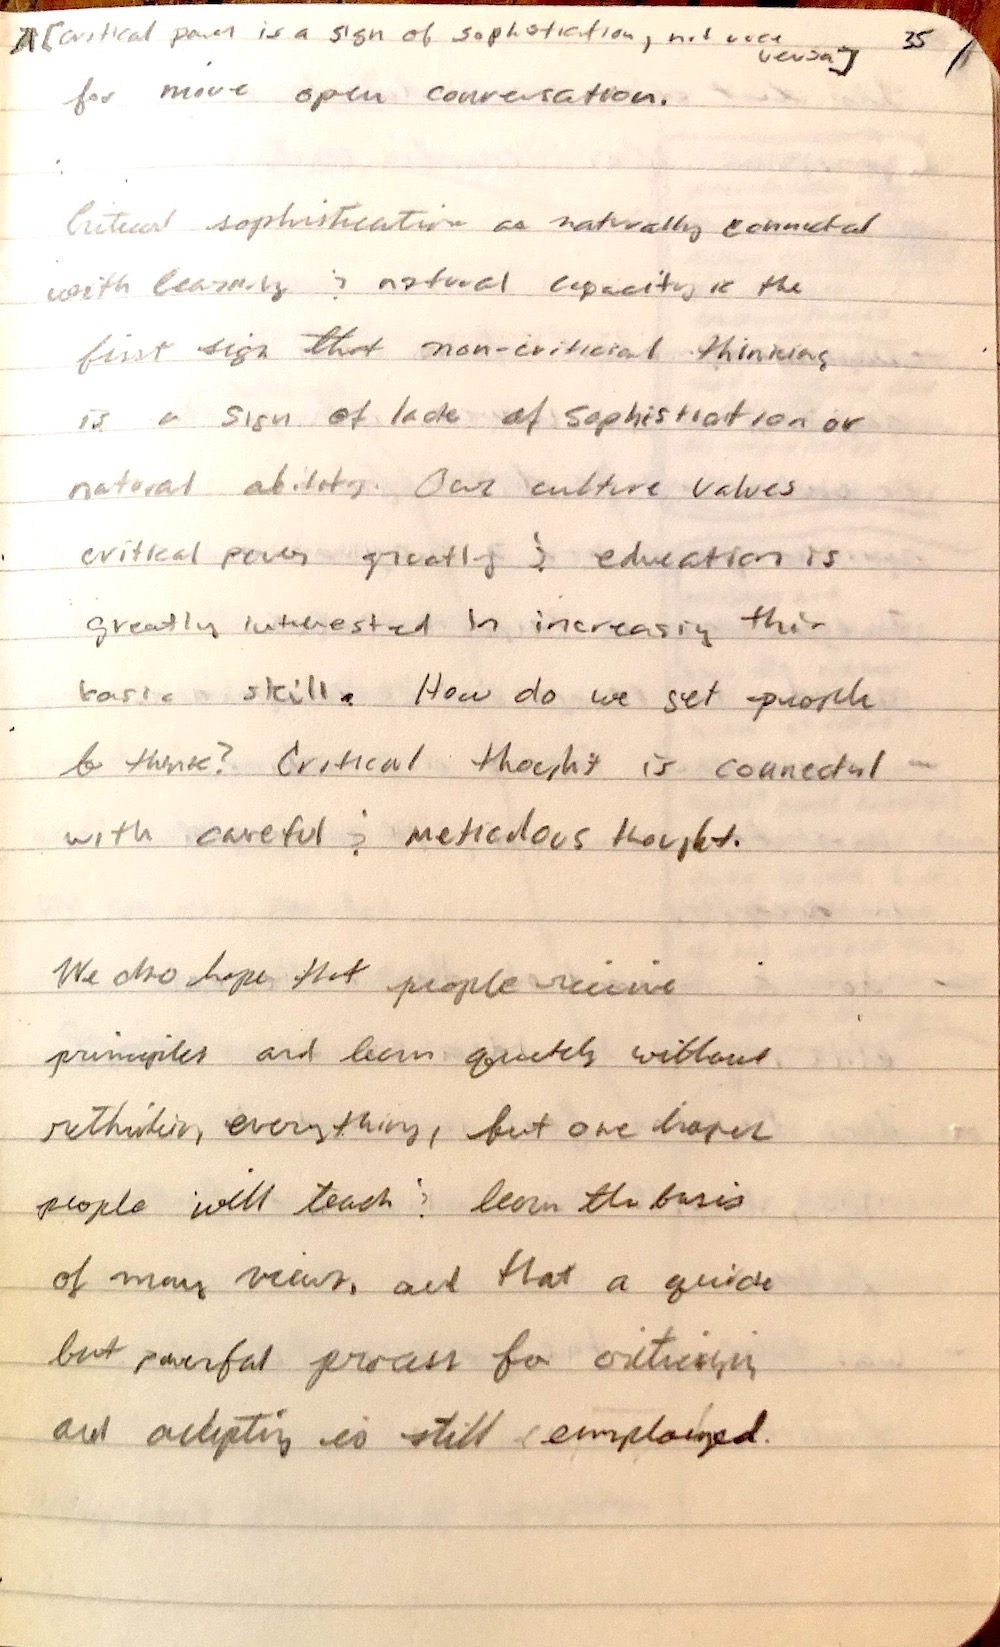 [Critical power is a sign of sophistication, not vice
versa]
35
for more open conversation.
Critical sophistication as naturally connected
with learning & natural capacity is the
first sign that non-criticial thinking
is a sign of lack of sophistication or
natural ability. Our culture values
critical power greatly & education is
greatly interested in increasing this
basic skill. How do we get people
to think? Critical thought is connected
with careful & meticulous thought.
We also hope that people receive
principles and learn quickly without
rethinking everything, but one hopes
people will teach & learn the basis
of many views, and that a quick
but powerful process for criticizing
and adopting is still employed.